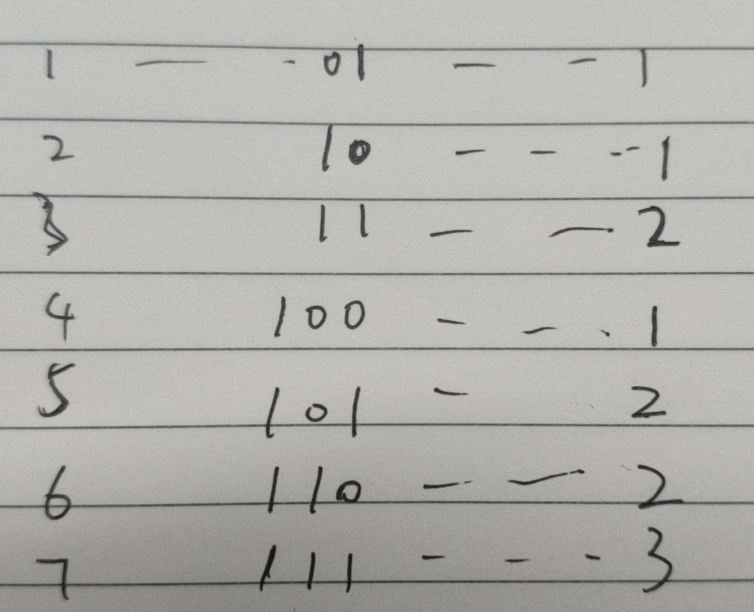 1 — - 01 — - 1
2 10 - - -- 1
3 11 — — 2
4 100 - - . 1
5 101 - 2
6 110 - — 2
7 111 - - - 3